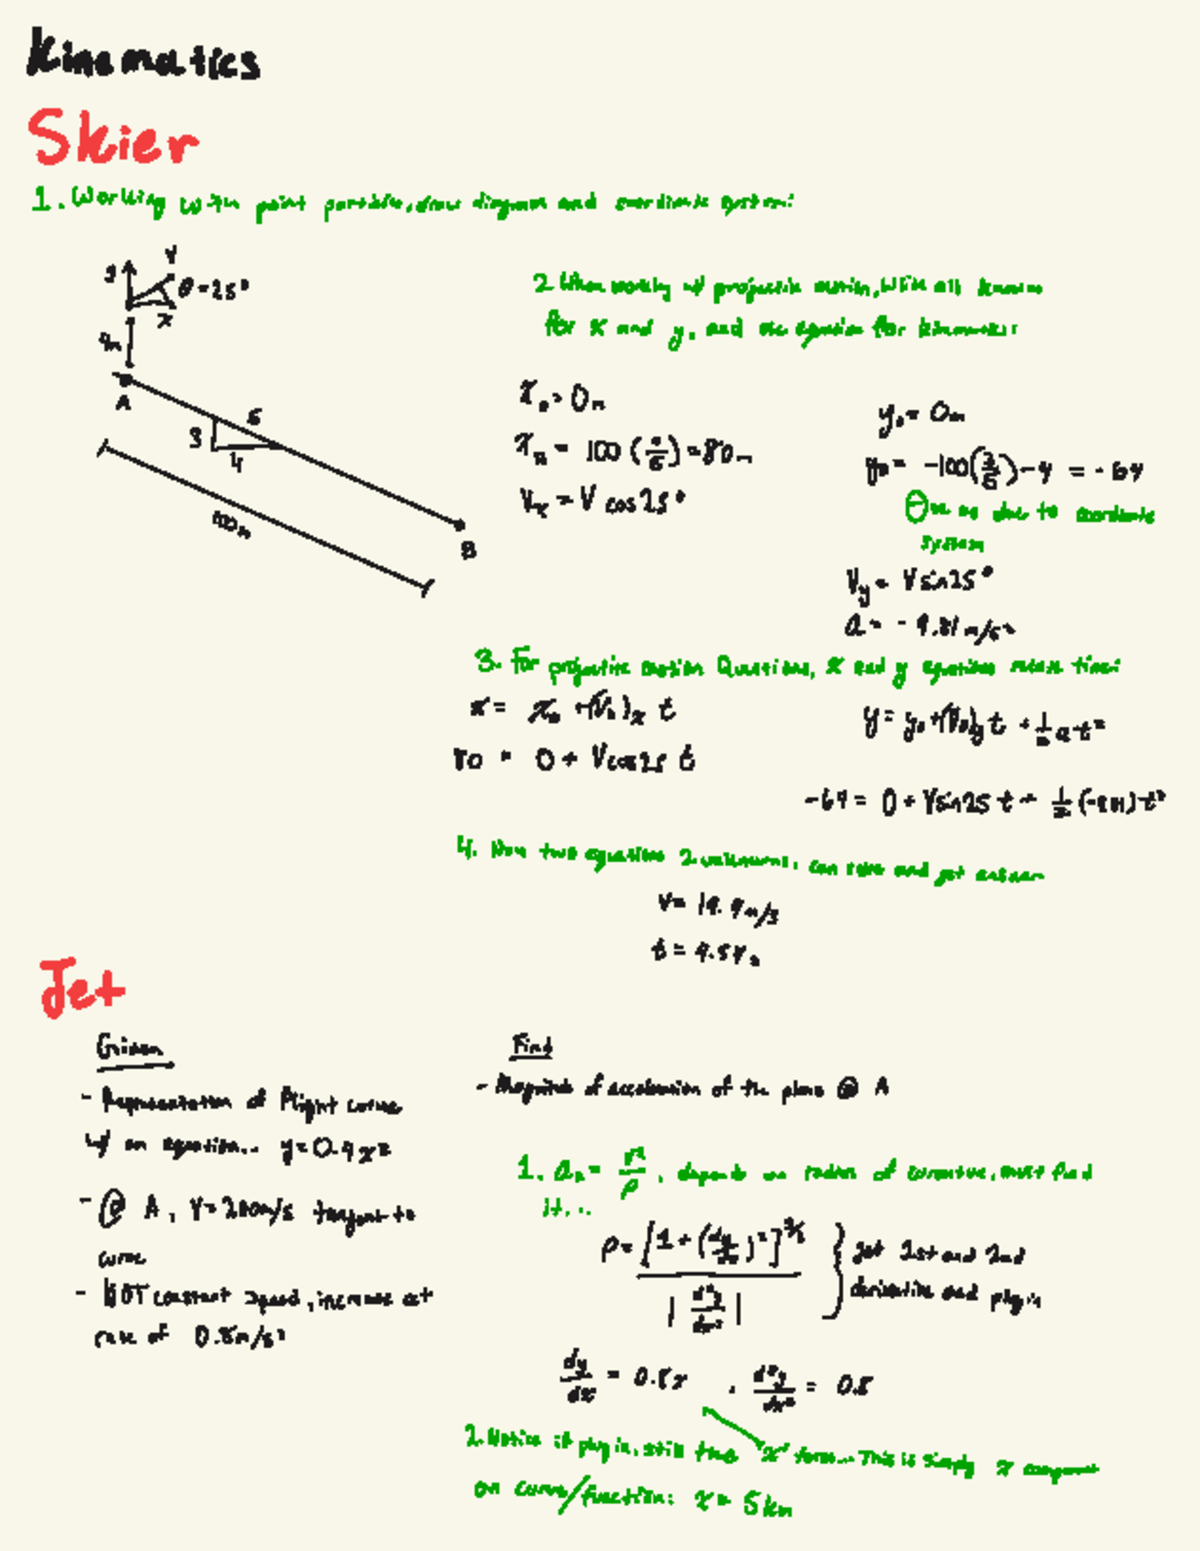 Kinematics
Skier
1. Working with point particle, draw diagram and coordinate system:
y
V
θ = 25°
x
4m
A
5
3
4
100m
B
2. When working w/ projectile motion, write all knowns
for x and y, and use equation for kinematics:
x₀ = 0m
x_B = 100 (4/5) = 80m
Vx = V cos25°
y₀ = 0m
y_B = -100(3/5) - 4 = -64
due to coordinate
system
Vy = V sin25°
a = -9.81 m/s²
3. For projectile motion Questions, x and y equations time:
x = x₀ + (V₀)x t
y = y₀ + (V₀)y t + 1/2 a t²
80 = 0 + Vcos25 t
-64 = 0 + Vsin25 t + 1/2 (-9.81) t²
4. Now two equations 2 unknowns, can solve and get answer
V = 19.4 m/s
t = 4.54s
Jet
Given
Find
- Representation of flight curve
w/ an equation... y = 0.4x²
- @ A, V = 200m/s tangent to
curve
- NOT constant speed, increase at
rate of 0.8m/s²
- Magnitude of acceleration of the plane @ A
1. aₙ = v²/ρ, depends on radius of curvature, must find
it...
ρ = [1 + (dy/dx)²]^3/2 / |d²y/dx²| } get 1st and 2nd
derivative and plug in
dy/dx = 0.8x , d²y/dx² = 0.8
2. Notice if plug in, still have "x" term... This is simply x component
on curve/function: x = 5km